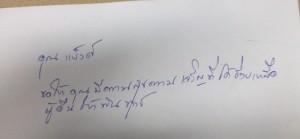 คุณ แม็วดี
ขอให้ คุณ มีความสุขความ เจริญ ที่ได้ช่วยเหลือ
ผู้อื่น ให้พ้นทุกข์